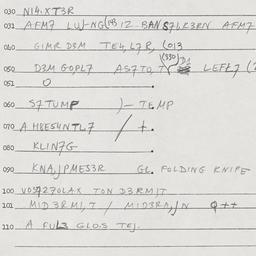 030 NI4.XT3R
031 AFM7 LUJ-NG 12 BANS7LR3RN AFM7
040 GIMR D3M TE4, L7R, (013
050 D3M GOPL7 AS7TO, T (330) D1 LEFL7 (2
051 O
060 S7TUMP )- TEMP
070 A H8E54NTL7 / t.
080 KLIN7G
090 KNA,JPMES3R GL. FOLDING KNIFE
100 VOS7270LAX TON D3RMIT
101 MID3RMI,T / MID3RA,JN Q++
110 A FUL3 GLOS TEJ.